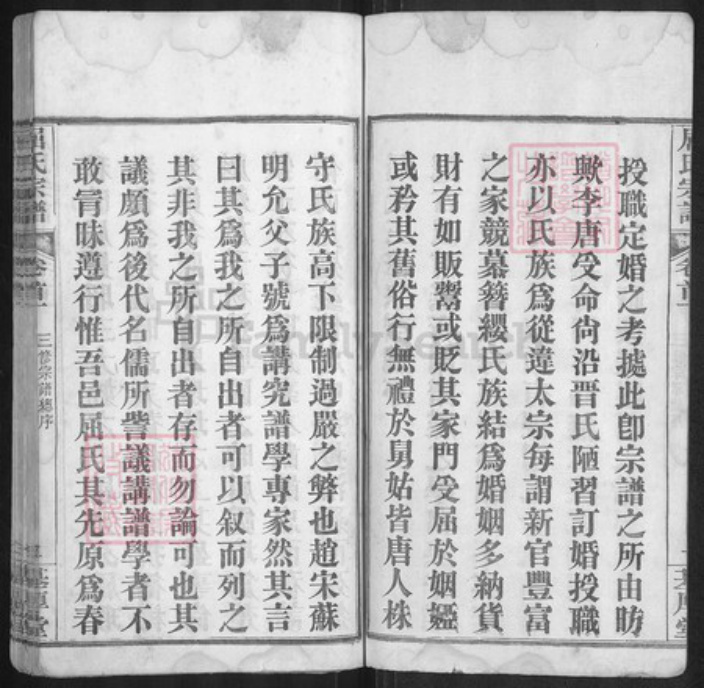 授職定婚之考據此卽宗譜之所由昉
歟李唐受命尙沿晋氏陋習訂婚授職
亦以氏族爲從違太宗每謂新官豐富
之家競慕簪纓氏族結爲婚姻多納貨
財有如販鬻或貶其家門受屈於姻婭
或矜其舊俗行無禮於舅姑皆唐人株
守氏族高下限制過嚴之弊也趙宋蘇
明允父子號爲講究譜學專家然其言
曰其爲我之所自出者可以叙而列之
其非我之所自出者存而勿論可也其
議頗爲後代名儒所訾議講譜學者不
敢冐昧遵行惟吾邑屈氏其先原爲春
屈氏宗譜
卷首一
三修宗譜總序
FamilySearch